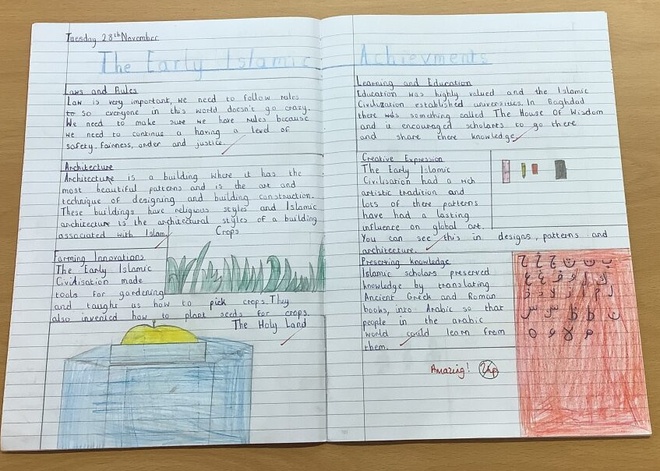 Tuesday 28th November
The Early Islamic Achievments
Laws and Rules
Law is very important, we need to follow rules
to so everyone in this world doesn't go crazy.
We need to make sure we have rules because
we need to continue a having a level of
safety, fairness, order and justice.
Architecture
Architecture is a building where it has the
most beautiful patterns and is the art and
technique of designing and building construction.
These buildings have religious styles and Islamic
architecture is the architectural styles of a building
associated with Islam.
Crops
Farming Innovations
The Early Islamic
Civilisation made
tools for gardening
and taught us how to pick crops. They
also invented how to plant seeds for crops.
The Holy Land
Learning and Education
Education was highly valued and the Islamic
Civilization established universities. In Baghdad
there was something called The House Of Wisdom
and it encouraged scholars to go there
and share there knowledge.
Creative Expression
The Early Islamic
Civilisation had a rich
artistic tradition and
lots of there patterns
have had a lasting
influence on global art.
You can see this in designs, patterns and
architecture.
Preserving knowledge
Islamic scholars preserved
knowledge by translating
Ancient Greek and Roman
books, into Arabic so that
people in the arabic
world could learn from
them.
Amazing!